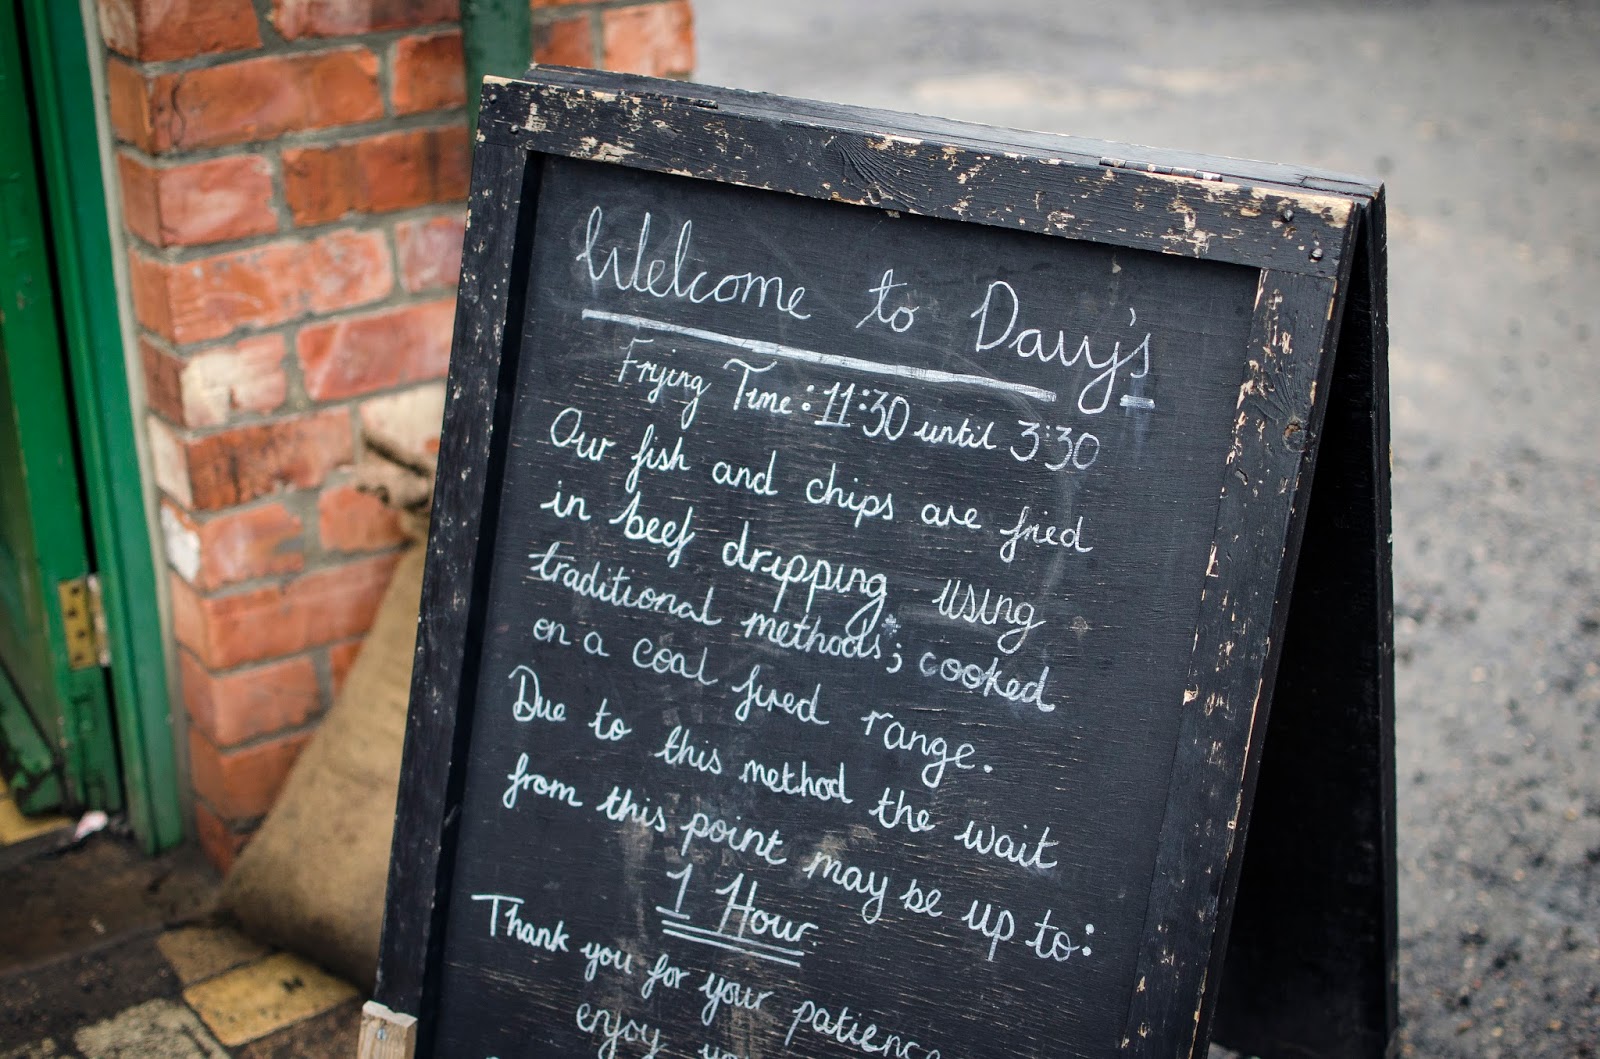 Welcome to Davy's
Frying Time: 11:30 until 3:30
Our fish and chips are fried
in beef dripping using
traditional methods; cooked
on a coal fired range.
Due to this method the wait
from this point may be up to:
1 Hour.
Thank you for your patience
enjoy